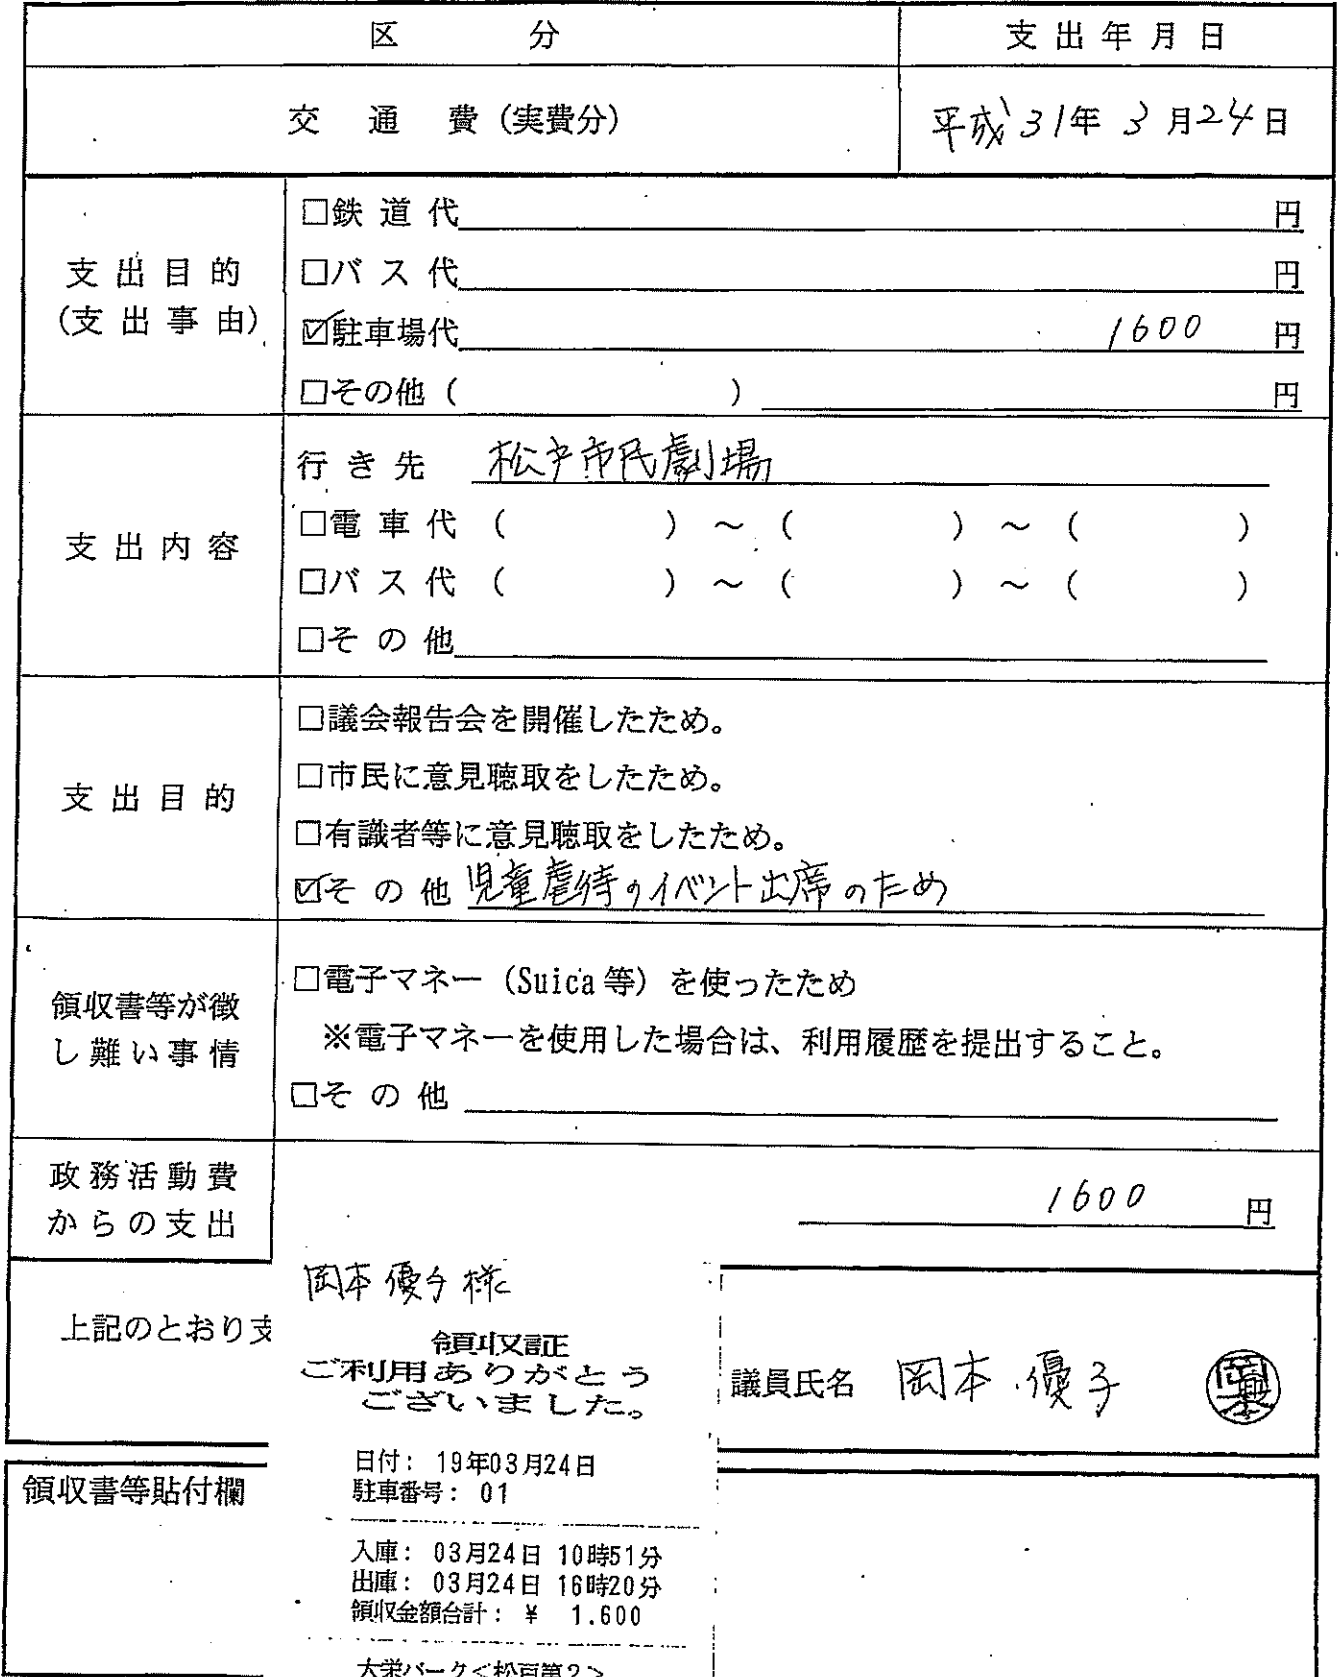 区 分 支出年月日
交 通 費（実費分） 平成31年3月24日
□鉄 道 代 円
支出目的
（支出事由）
□バ ス 代 円
☑駐車場代 1600 円
□その他（ ） 円
支出内容
行き先 松戸市民劇場
□電車代（ ）～（ ）～（ ）
□バス代（ ）～（ ）～（ ）
□その他
支出目的
□議会報告会を開催したため。
□市民に意見聴取をしたため。
□有識者等に意見聴取をしたため。
☑その他 児童虐待のイベント出席のため
領収書等が徴
し難い事情
□電子マネー（Suica等）を使ったため
※電子マネーを使用した場合は、利用履歴を提出すること。
□その他
政務活動費
からの支出
1600 円
上記のとおり支
議員氏名 岡本 優子
領収書等貼付欄
岡本優子様
領収証
ご利用ありがとう
ございました。
日付： 19年03月24日
駐車番号： 01
入庫： 03月24日 10時51分
出庫： 03月24日 16時20分
領収金額合計： ¥ 1.600
大栄パーク<松戸第2>